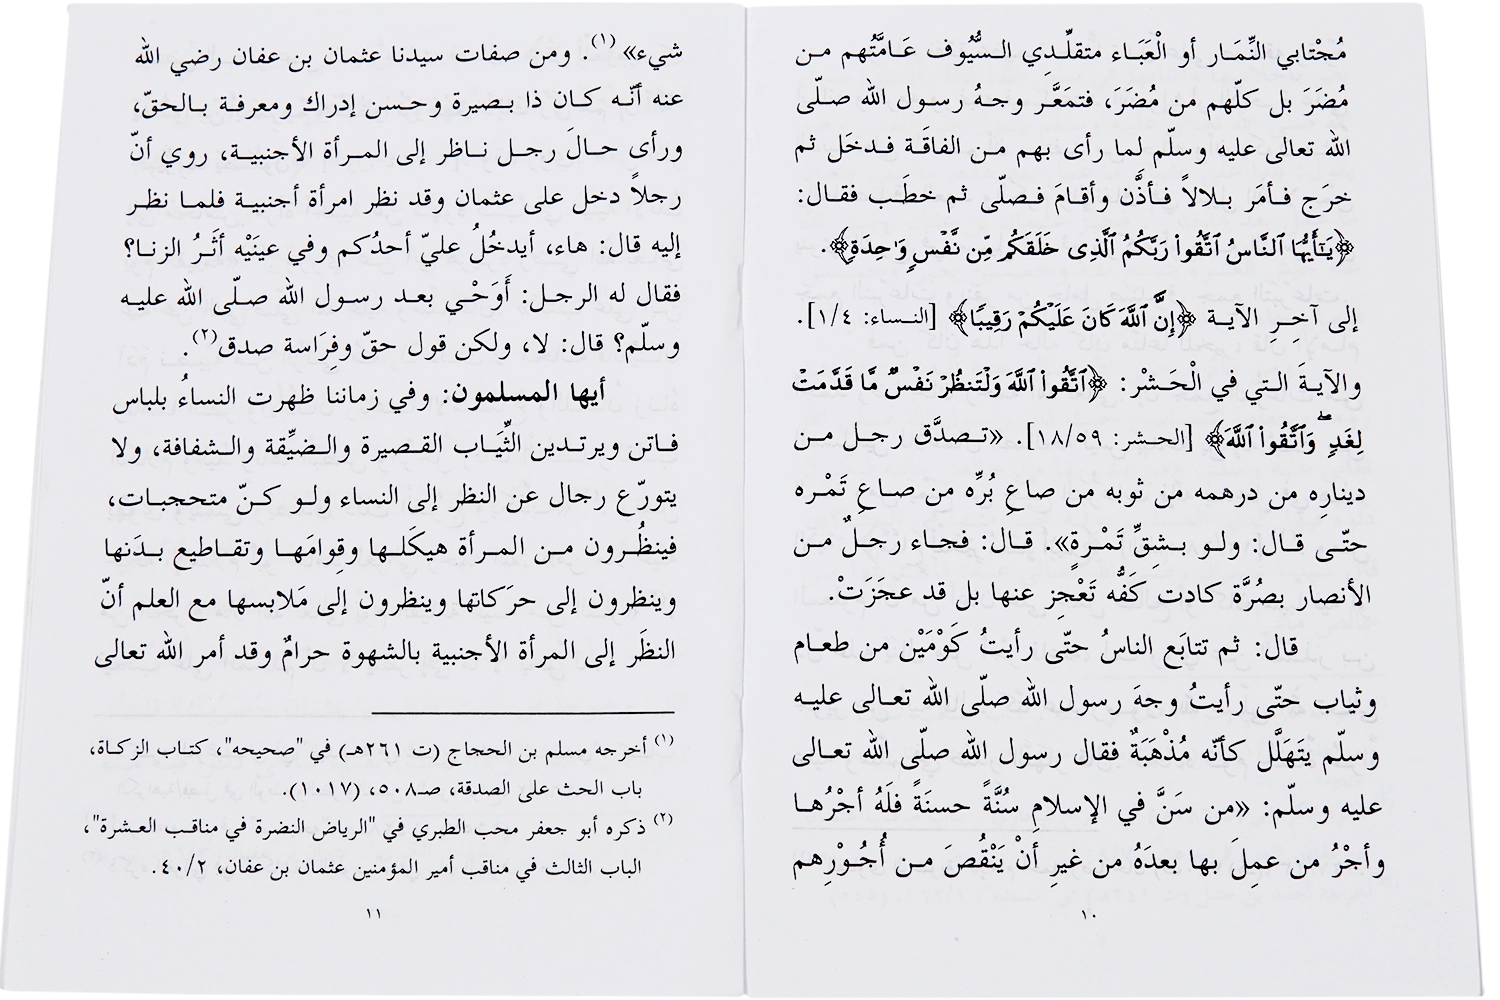 مُجْتابي النِّمَار أو الْعَبَاء متقلِّدِي السُّيُوف عَامَّتُهم من
مُضَرَ بل كلّهم من مُضَرَ، فتمَعَّر وجهُ رسول الله صلّى
الله تعالى عليه وسلّم لما رأى بهم من الفاقَة فدخَل ثم
خرَج فأمَر بلالاً فأذَّن وأقامَ فصلّى ثم خطَب فقال:
﴿يَٰٓأَيُّهَا ٱلنَّاسُ ٱتَّقُواْ رَبَّكُمُ ٱلَّذِى خَلَقَكُم مِّن نَّفْسٍ وَٰحِدَةٍ﴾.
إلى آخِرِ الآية ﴿إِنَّ ٱللَّهَ كَانَ عَلَيْكُمْ رَقِيبًا﴾ [النساء: ١/٤].
والآيةَ التي في الْحَشْر: ﴿ٱتَّقُواْ ٱللَّهَ وَلْتَنظُرْ نَفْسٌ مَّا قَدَّمَتْ
لِغَدٍ ۖ وَٱتَّقُواْ ٱللَّهَ﴾ [الحشر: ١٨/٥٩]. «تصدَّق رجل من
دينارِه من درهمه من ثوبه من صاعِ بُرِّه من صاعِ تَمْره
حتّى قال: ولو بشِقِّ تَمْرةٍ». قال: فجاء رجلٌ من
الأنصار بصُرَّة كادت كَفُّه تَعْجز عنها بل قد عجَزَتْ.
قال: ثم تتابَع الناسُ حتّى رأيتُ كَوْمَيْن من طعام
وثياب حتّى رأيتُ وجهَ رسول الله صلّى الله تعالى عليه
وسلّم يتَهَلَّل كأنّه مُذْهَبَةٌ فقال رسول الله صلّى الله تعالى
عليه وسلّم: «من سَنَّ في الإسلامِ سُنَّةً حسنَةً فلَهُ أجْرُها
وأجْرُ من عمِلَ بها بعدَهُ من غيرِ أنْ يَنْقُصَ من أُجُوْرِهم
١٠
شيء» (١). ومن صفات سيدنا عثمان بن عفان رضي الله
عنه أنّه كان ذا بصيرة وحسن إدراك ومعرفة بالحقّ،
ورأى حالَ رجل ناظر إلى المرأة الأجنبية، روي أنّ
رجلاً دخل على عثمان وقد نظر امرأة أجنبية فلما نظر
إليه قال: هاء، أيدخُلُ عليّ أحدُكم وفي عينَيْه أثَرُ الزنا؟
فقال له الرجل: أَوَحْي بعد رسول الله صلّى الله عليه
وسلّم؟ قال: لا، ولكن قول حقّ وفِرَاسة صدق(٢).
أيها المسلمون: وفي زماننا ظهرت النساءُ بلباس
فاتن ويرتدين الثِّيَاب القصيرة والضيِّقة والشفافة، ولا
يتورّع رجال عن النظر إلى النساء ولو كنّ متحجبات،
فينظُرون من المرأة هيكَلها وقِوامَها وتقاطيع بدَنها
وينظرون إلى حرَكاتها وينظرون إلى مَلابسها مع العلم أنّ
النظَر إلى المرأة الأجنبية بالشهوة حرامٌ وقد أمر الله تعالى
(١) أخرجه مسلم بن الحجاج (ت ٢٦١هـ) في "صحيحه"، كتاب الزكاة،
باب الحث على الصدقة، صـ٥٠٨، (١٠١٧).
(٢) ذكره أبو جعفر محب الطبري في "الرياض النضرة في مناقب العشرة"،
الباب الثالث في مناقب أمير المؤمنين عثمان بن عفان، ٤٠/٢.
١١